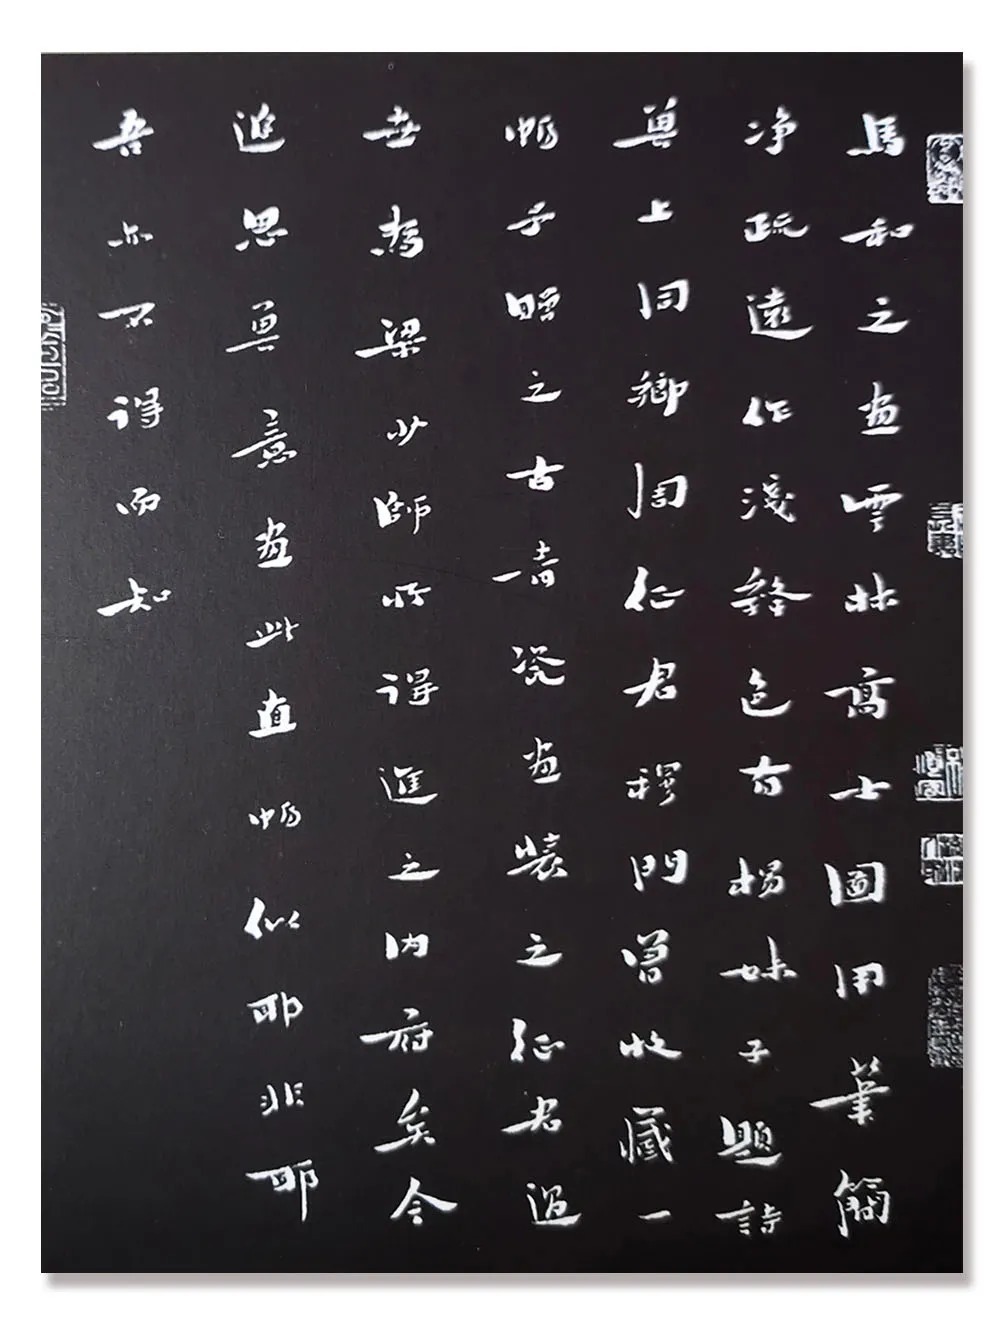 馬和之畫雲林高士圖用筆簡
净疏遠作淺絳色有楊妹子題詩
其上同鄉周征君穆門曾收藏一
幀予贈之古香瓷畫裝之征君過
世為梁少師所得進之内府矣今
追思其意畫此直幀似耶非耶
吾亦不得而知